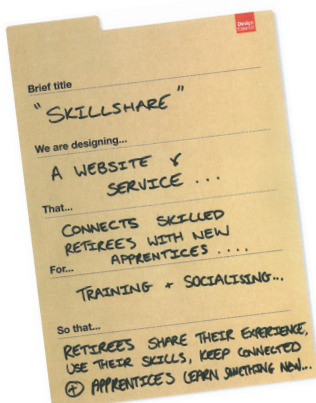 Design
Council
Brief title
"SKILLSHARE"
We are designing...
A WEBSITE &
SERVICE ...
That...
CONNECTS SKILLED
RETIREES WITH NEW
APPRENTICES ....
For...
TRAINING + SOCIALISING...
So that...
RETIREES SHARE THEIR EXPERIENCE,
USE THEIR SKILLS, KEEP CONNECTED
+ APPRENTICES LEARN SOMETHING NEW...